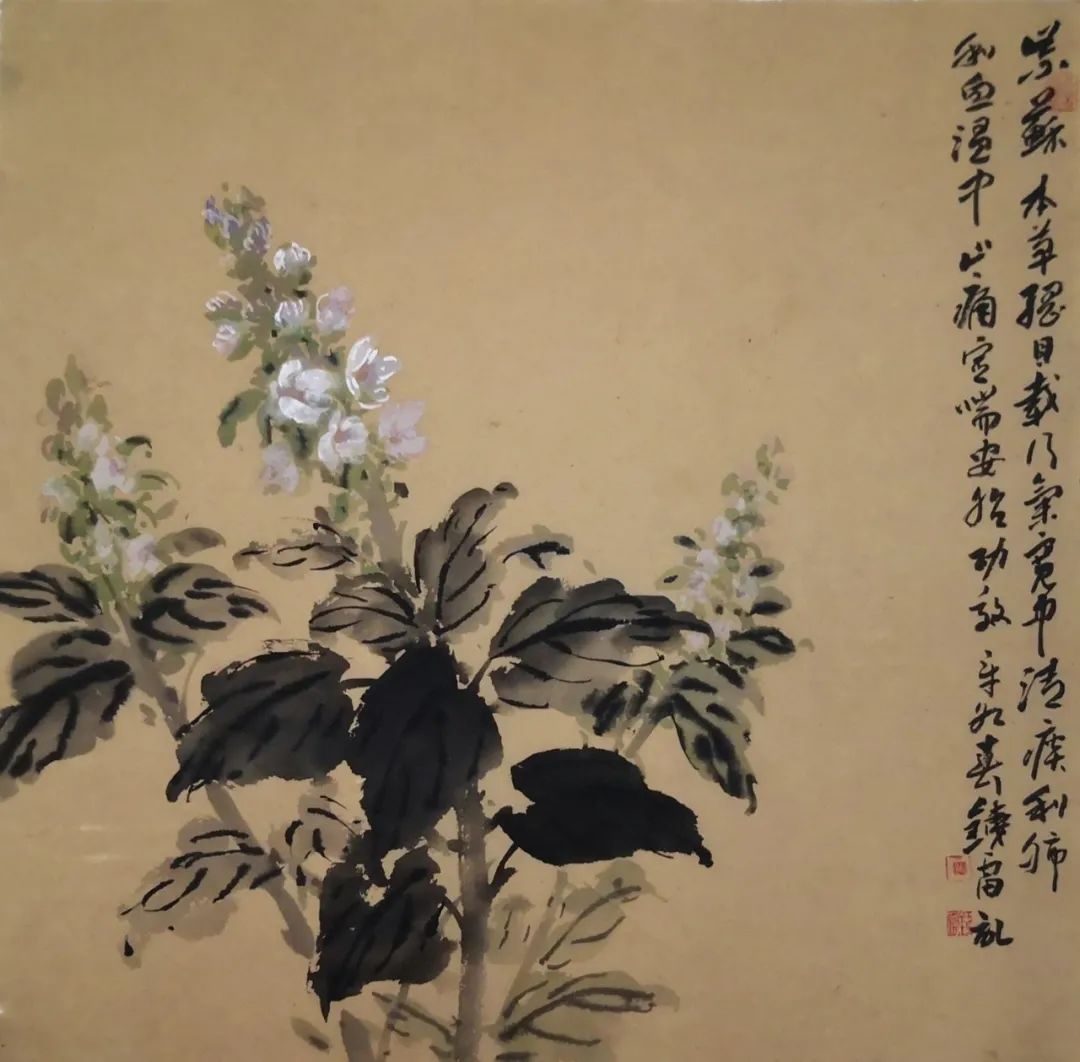 紫蘇 本草綱目載行氣寬中清痰利肺
和血溫中止痛定喘安胎功效 辛丑春鐃雷記